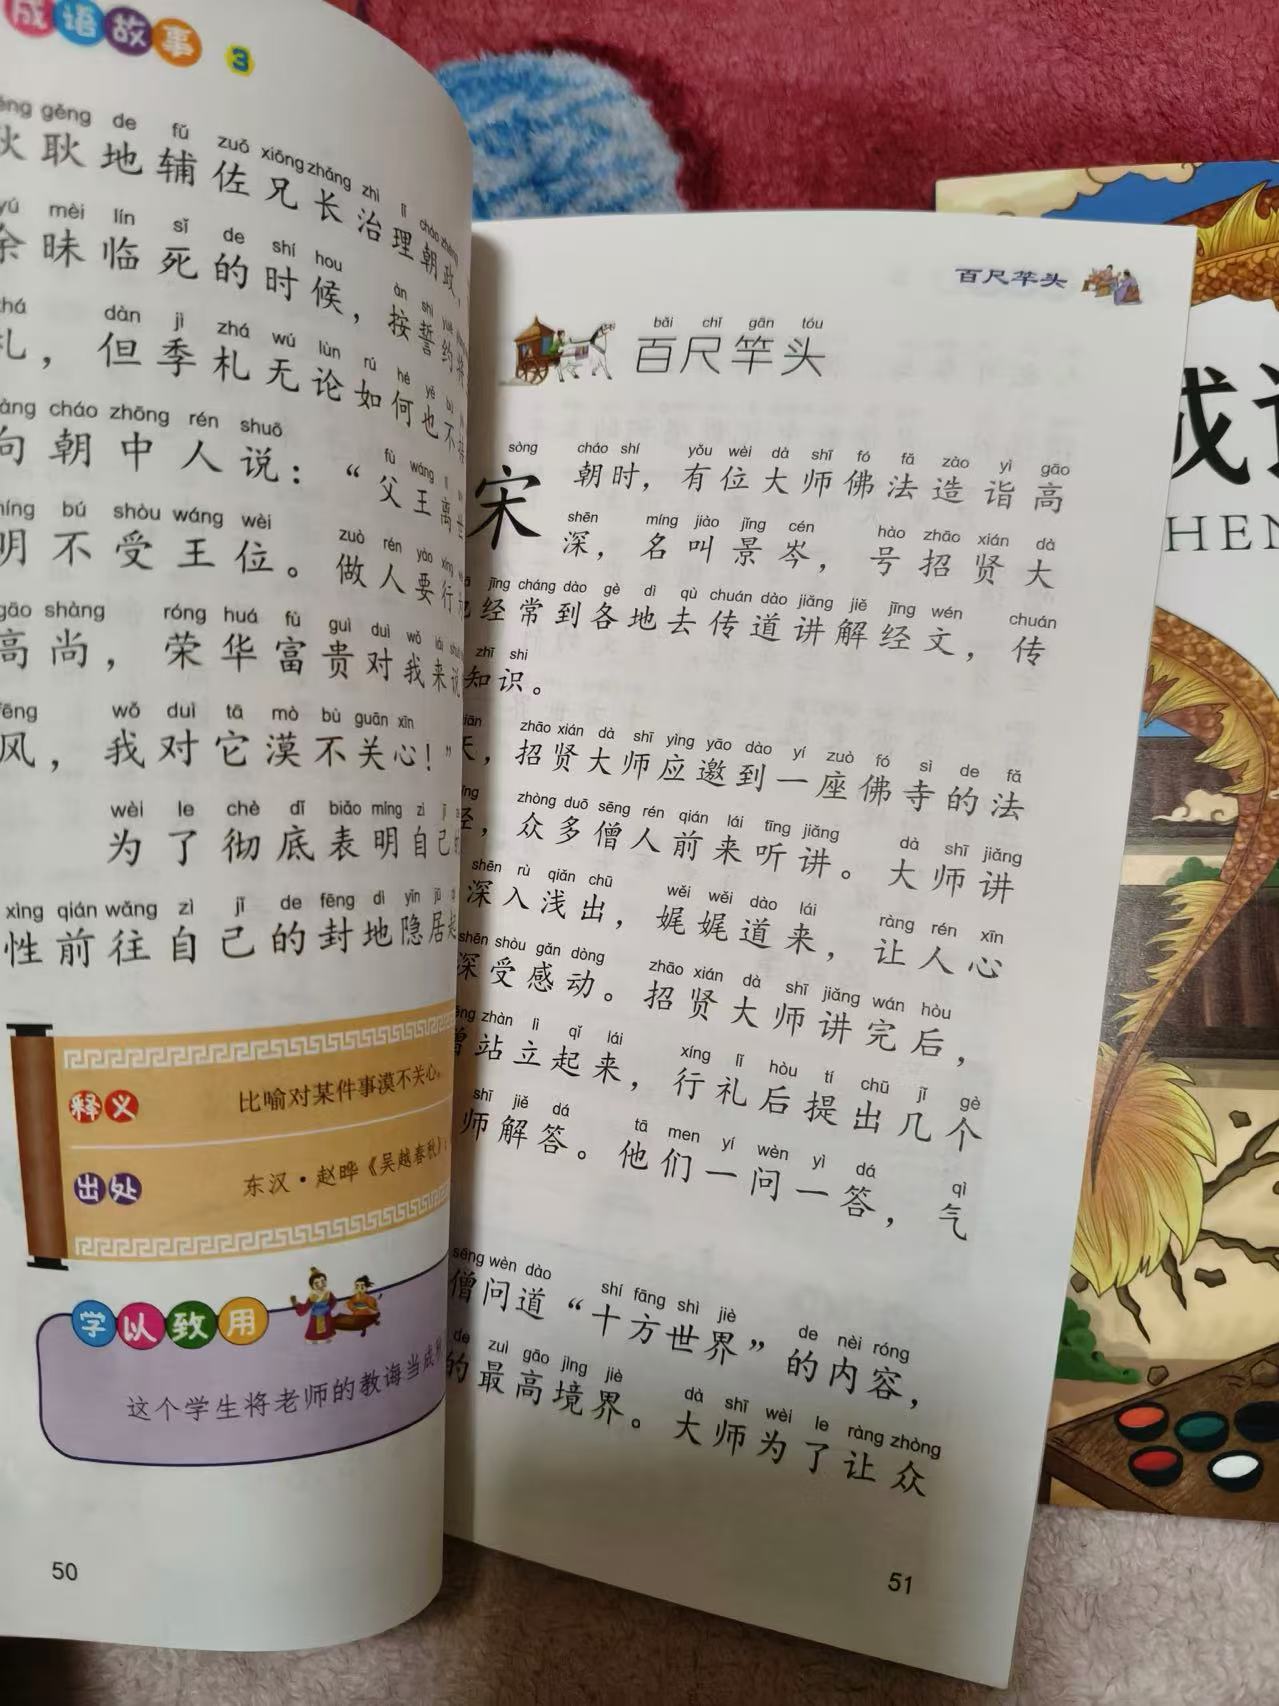 成语故事 3
gěng gěng de fǔ zuǒ xiōng zhǎng zhì lǐ cháo zhèng
耿地辅佐兄长治理朝政，
yú mèi lín sǐ de shí hou àn shì yuē
余昧临死的时候，按誓约将
zhá dàn jì zhá wú lùn rú hé yě bù
札，但季札无论如何也不
cháo zhōng rén shuō fù wáng lí shì
向朝中人说：“父王离世
míng bú shòu wáng wèi zuò rén yào xíng
明不受王位。做人要行
gāo shàng róng huá fù guì duì wǒ lái shuō
高尚，荣华富贵对我来说
fēng wǒ duì tā mò bù guān xīn
风，我对它漠不关心！”
wèi le chè dǐ biǎo míng zì jǐ
为了彻底表明自己的
xìng qián wǎng zì jǐ de fēng dì yǐn jū
性前往自己的封地隐居起
释义
比喻对某件事漠不关心。
出处
东汉·赵晔《吴越春秋》：
学以致用
这个学生将老师的教诲当成
50
百尺竿头
bǎi chǐ gān tóu
百尺竿头
sòng cháo shí yǒu wèi dà shī fó fǎ zào yì gāo
宋朝时，有位大师佛法造诣高
shēn míng jiào jǐng cén hào zhāo xián dà
深，名叫景岑，号招贤大
jīng cháng dào gè dì qù chuán dào jiǎng jiě jīng wén chuán
经常到各地去传道讲解经文，传
zhī shi
知识。
zhāo xián dà shī yìng yāo dào yí zuò fó sì de fǎ
天，招贤大师应邀到一座佛寺的法
zhòng duō sēng rén qián lái tīng jiǎng dà shī jiǎng
经，众多僧人前来听讲。大师讲
shēn rù qiǎn chū wěi wěi dào lái ràng rén xīn
深入浅出，娓娓道来，让人心
shēn shòu gǎn dòng zhāo xián dà shī jiǎng wán hòu
深受感动。招贤大师讲完后，
zhàn lì qǐ lái xíng lǐ hòu tí chū jǐ gè
僧站立起来，行礼后提出几个
shī jiě dá tā men yí wèn yì dá qì
师解答。他们一问一答，气
sēng wèn dào shí fāng shì jiè de nèi róng
僧问道“十方世界”的内容，
de zuì gāo jìng jiè dà shī wèi le ràng zhòng
的最高境界。大师为了让众
51
HEN